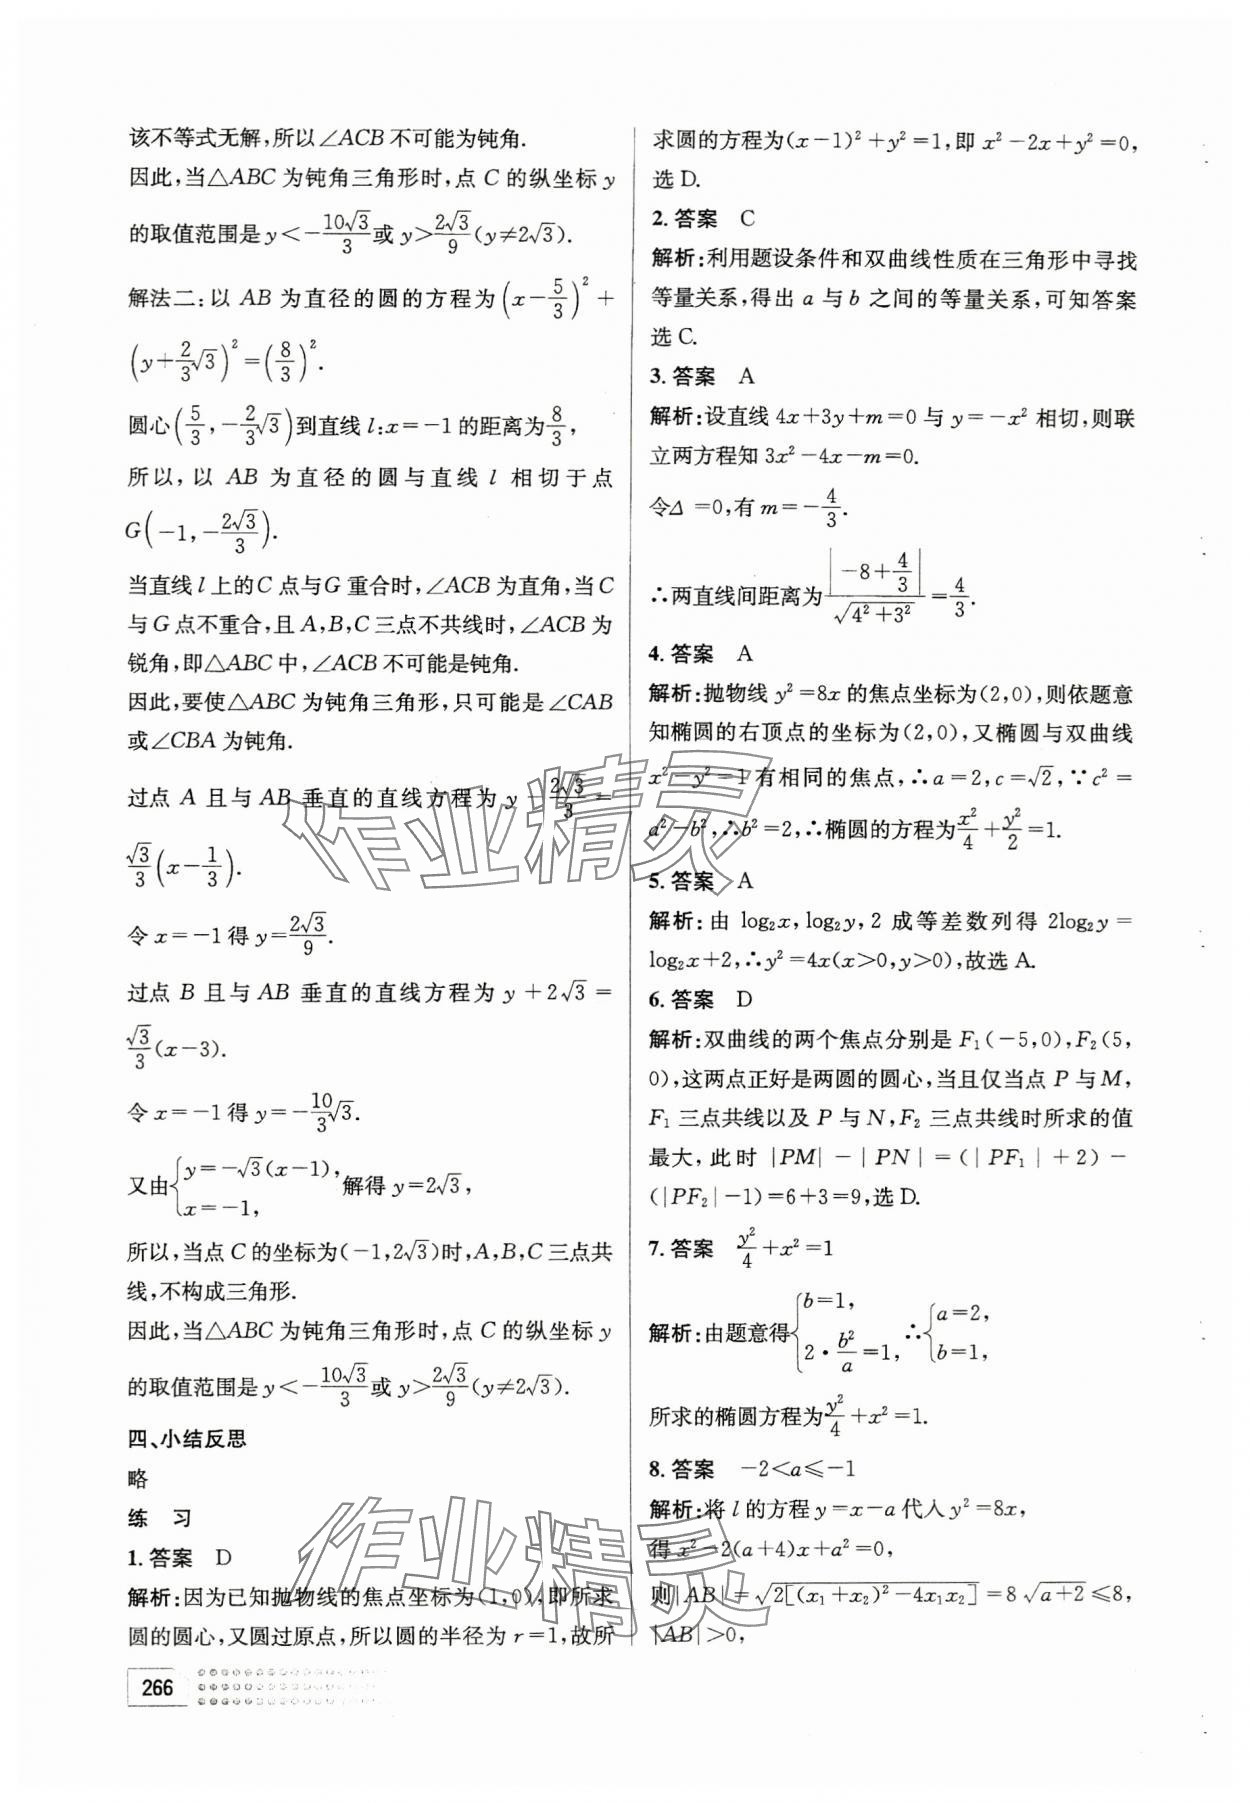 该不等式无解,所以∠ACB不可能为钝角.
因此,当△ABC为钝角三角形时,点C的纵坐标y
的取值范围是y<-10√3/3或y>2√3/9(y≠2√3).
解法二:以AB为直径的圆的方程为(x-5/3)²+
(y+2/3√3)²=(8/3)².
圆心(5/3,-2/3√3)到直线l:x=-1的距离为8/3,
所以,以AB为直径的圆与直线l相切于点
G(-1,-2√3/3).
当直线l上的C点与G重合时,∠ACB为直角,当C
与G点不重合,且A,B,C三点不共线时,∠ACB为
锐角,即△ABC中,∠ACB不可能是钝角.
因此,要使△ABC为钝角三角形,只可能是∠CAB
或∠CBA为钝角.
过点A且与AB垂直的直线方程为y-2√3/3=
√3/3(x-1/3).
令x=-1得y=2√3/9.
过点B且与AB垂直的直线方程为y+2√3=
√3/3(x-3).
令x=-1得y=-10/3√3.
又由{y=-√3(x-1), x=-1, 解得y=2√3,
所以,当点C的坐标为(-1,2√3)时,A,B,C三点共
线,不构成三角形.
因此,当△ABC为钝角三角形时,点C的纵坐标y
的取值范围是y<-10√3/3或y>2√3/9(y≠2√3).
四、小结反思
略
练 习
1.答案 D
解析:因为已知抛物线的焦点坐标为(1,0),即所求
圆的圆心,又圆过原点,所以圆的半径为r=1,故所
求圆的方程为(x-1)²+y²=1,即x²-2x+y²=0,
选D.
2.答案 C
解析:利用题设条件和双曲线性质在三角形中寻找
等量关系,得出a与b之间的等量关系,可知答案
选C.
3.答案 A
解析:设直线4x+3y+m=0与y=-x²相切,则联
立两方程知3x²-4x-m=0.
令Δ=0,有m=-4/3.
∴两直线间距离为|-8+4/3|/√(4²+3²)=4/3.
4.答案 A
解析:抛物线y²=8x的焦点坐标为(2,0),则依题意
知椭圆的右顶点的坐标为(2,0),又椭圆与双曲线
x²-y²=1有相同的焦点,∴a=2,c=√2,∵c²=
a²-b²,∴b²=2,∴椭圆的方程为x²/4+y²/2=1.
5.答案 A
解析:由log₂x,log₂y,2成等差数列得2log₂y=
log₂x+2,∴y²=4x(x>0,y>0),故选A.
6.答案 D
解析:双曲线的两个焦点分别是F₁(-5,0),F₂(5,
0),这两点正好是两圆的圆心,当且仅当点P与M,
F₁三点共线以及P与N,F₂三点共线时所求的值
最大,此时|PM|-|PN|=(|PF₁|+2)-
(|PF₂|-1)=6+3=9,选D.
7.答案 y²/4+x²=1
解析:由题意得{b=1, 2·b²/a=1, ∴{a=2, b=1,
所求的椭圆方程为y²/4+x²=1.
8.答案 -2<a≤-1
解析:将l的方程y=x-a代入y²=8x,
得x²-2(a+4)x+a²=0,
则|AB|=√(2[(x₁+x₂)²-4x₁x₂])=8√(a+2)≤8,
|AB|>0,
266
作业精灵
作业精灵